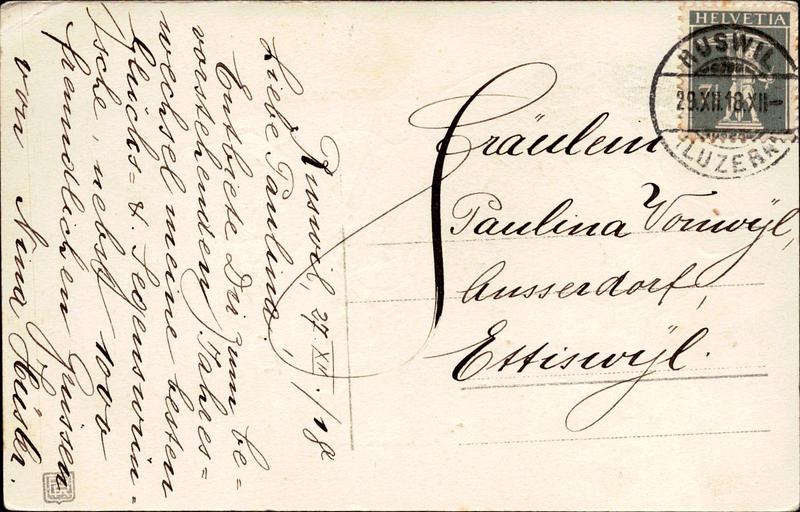 HELVETIA
7½
RUSWIL
29.XII.18.XII-
(LUZERN)
Fräulein
Paulina Vonwyl,
Ausserdorf,
Ettiswyl.
Ruswil, 27. XII./18
Liebe Paulina!,
Entbiete Dir zum be=
vorstehenden Jahres=
wechsel meine besten
Glücks= & Segenswün=
sche, nebst 1000
freundlichen Grüssen
von Nina